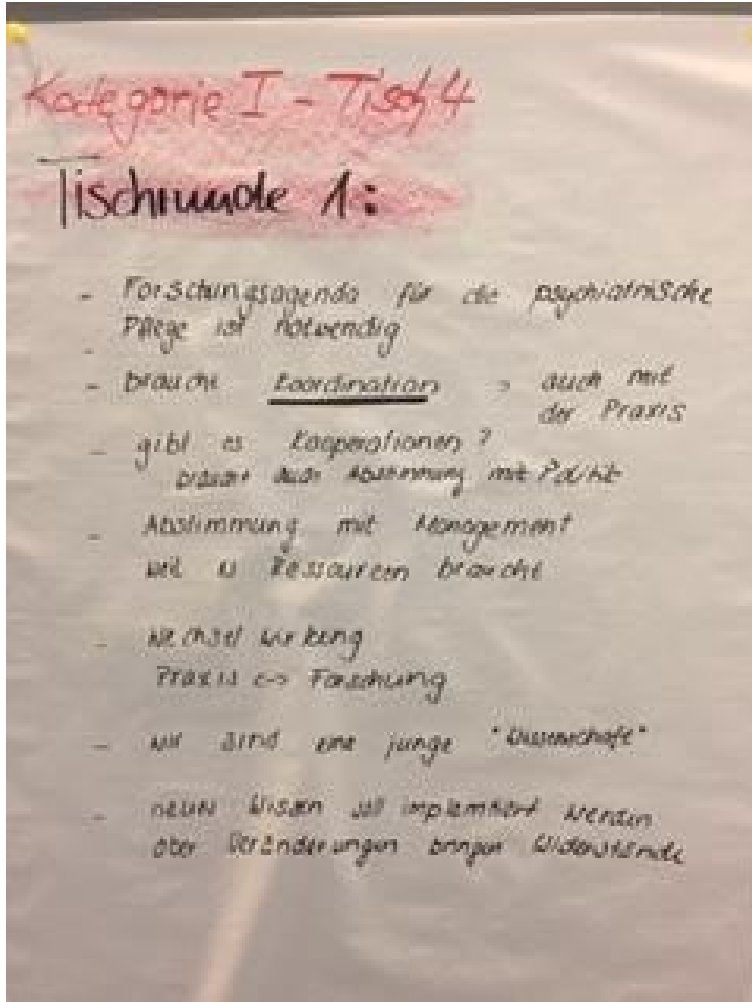 Kategorie I - Tisch 4
Tischrunde 1:
- Forschungsagenda für die psychiatrische
Pflege ist notwendig
- braucht Koordination → auch mit
der Praxis
- gibt es Kooperationen?
braucht auch Abstimmung mit Politik
- Abstimmung mit Management
weil es Ressourcen braucht
- Wechselwirkung
Praxis <-> Forschung
- wir sind eine junge "Wissenschaft"
- neues Wissen soll implementiert werden
aber Veränderungen bringen Widerstände